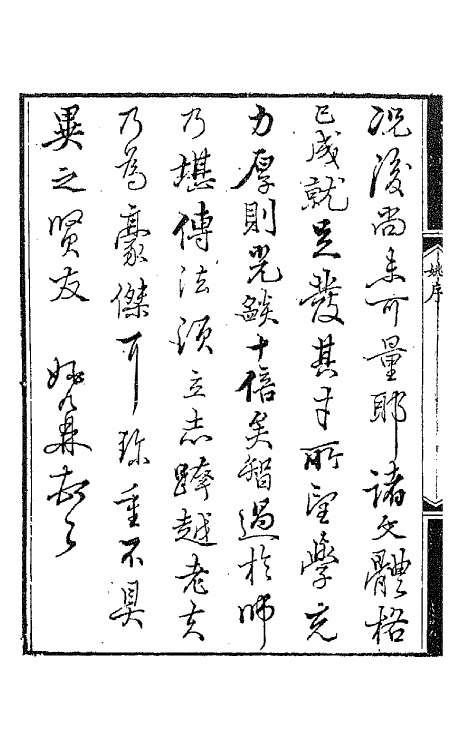 況後尚未可量耶諸文體格
已成就足發其才所望學充
力厚則光燄十倍矣智過於師
乃堪傳法須立志跨越老夫
乃為豪傑耳珍重不具
異之賢友 姚鼐頓首
姚序